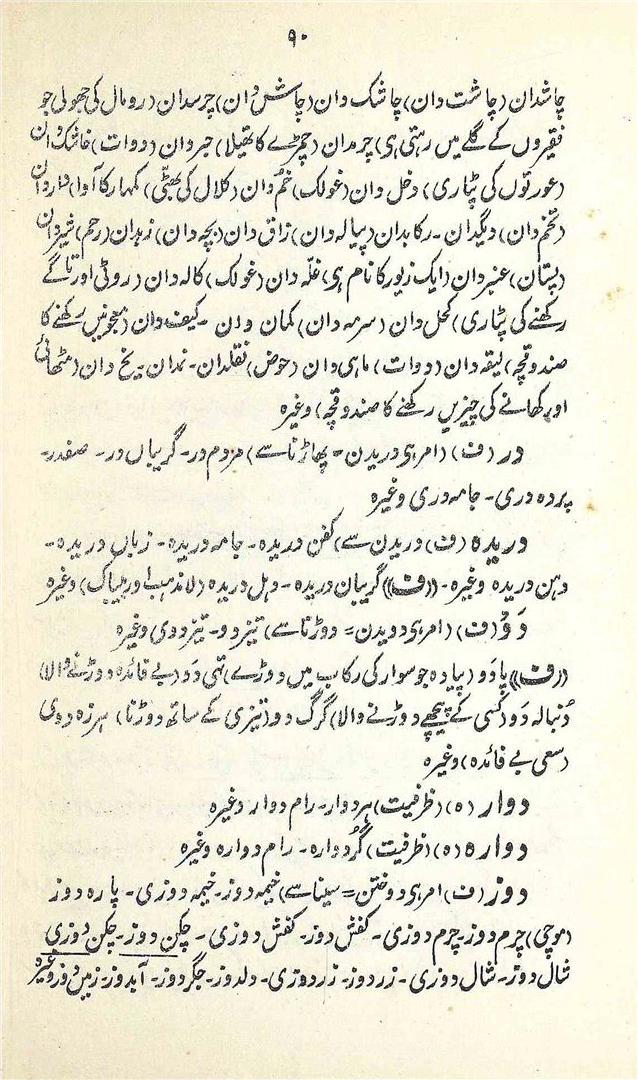 ۹۰
چاشدان (چاشت دان) چاشک دان (چاش دان) چرسدان (رومال کی جھولی جو
فقیروں کے گلے میں رہتی ہی) چرمدان (چمڑے کا تھیلا) حبردان (دوات) خاشک دان
(عورتوں کی پٹاری) دخل دان (غولک) خم دان (کلال کی بھٹّی) کمہار کا آوا) داروان
(تخم دان) دیگدان۔ رکابدان (پیالہ دان) زاق دان (بچہ دان) زہدان (رحم) شیردان
(پستان) عنبردان (ایک زیور کا نام ہی) غلّہ دان (غولک) کالہ دان (روئی اور تاگے
رکھنے کی پٹاری) کحل دان (سرمہ دان) کمان دان۔ کیف دان (معجونیں رکھنے کا
صندوقچہ) لیقہ دان (دوات) ماہی دان (حوض) نقلدان۔ نمدان یخ دان (مٹھائی
اور کھانے کی چیزیں رکھنے کا صندوقچہ) وغیرہ
در (ف) (امر ہی دریدن = پھاڑنا سے) مزدم در۔ گریباں در۔ صفدر۔
پردہ دری۔ جامہ دری وغیرہ
دریدہ (ف) دریدن سے) کفن دریدہ۔ جامہ دریدہ۔ زباں دریدہ۔
دہن دریدہ وغیرہ۔ ((ف)) گریبان دریدہ۔ دہل دریدہ (لا مذہب اور بیباک) وغیرہ
دَوْ (ف) (امر ہی دویدن = دوڑنا سے) تیز دو۔ تیز دوی وغیرہ
((ف)) پادَو (پیادہ جو سوار کی رکاب میں دوڑے) تہی دَو (بے فائدہ دوڑنے والا)
دُنبالہ دَو (کسی کے پیچھے دوڑنے والا) گرگ دو (تیزی کے ساتھ دوڑنا) ہرزہ دوی
(سعی بے فائدہ) وغیرہ
دوار (ہ) (ظرفیت) ہردوار۔ رام دوار وغیرہ
دوارہ (ہ) (ظرفیت) گُردوارہ۔ رام دوارہ وغیرہ
دوز (ف) امر ہی دوختن = سینا سے) خیمہ دوز۔ خیمہ دوزی۔ پارہ دوز
(موچی) چرم دوز۔ چرم دوزی۔ کفش دوز۔ کفش دوزی۔ چکن دوز۔ چکن دوزی
شال دوز۔ شال دوزی۔ زردوز۔ زردوزی۔ دلدوز۔ جگر دوز۔ آبدوز۔ زمین دوز وغیرہ